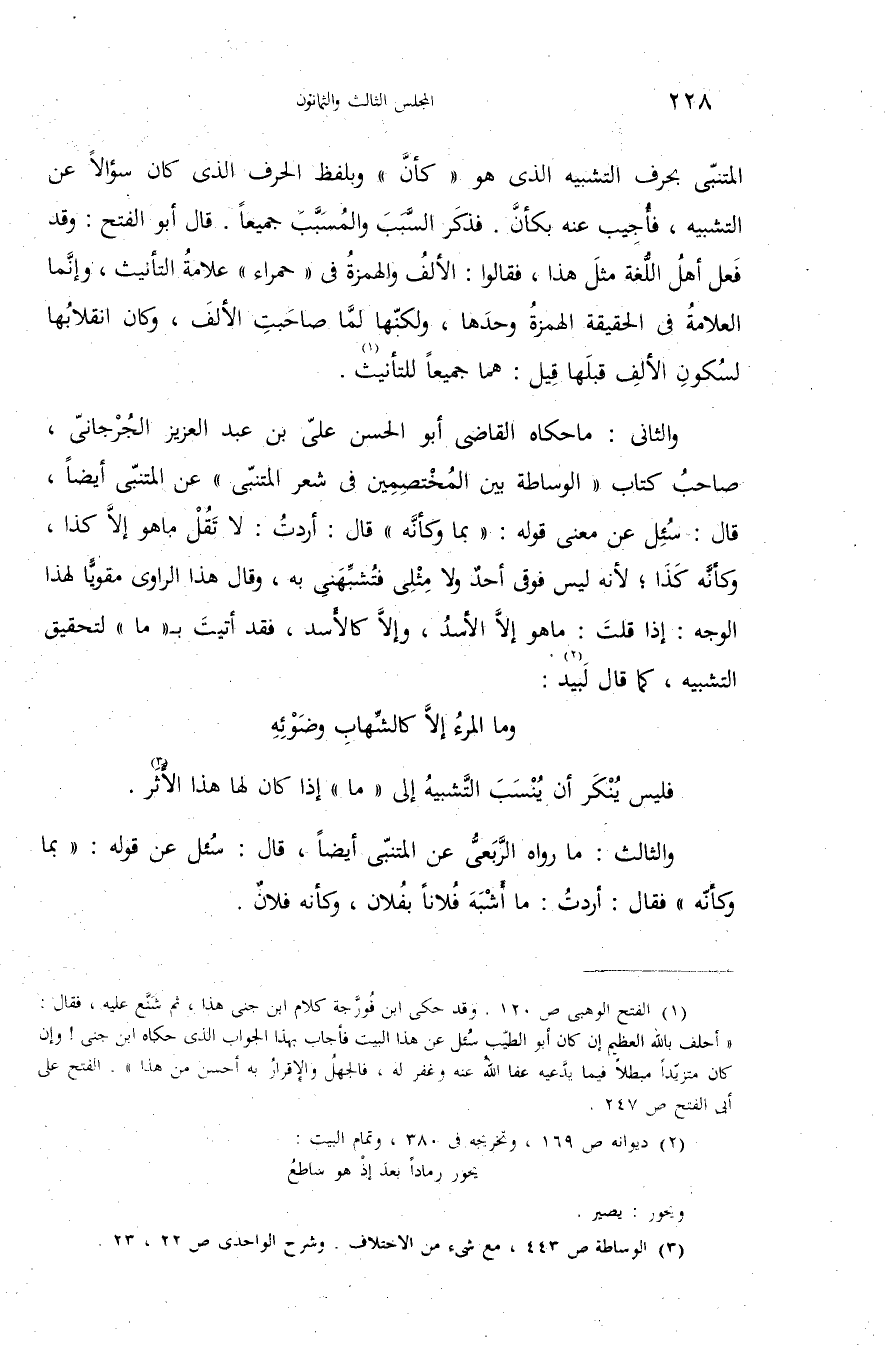 ٢٢٨ المجلس الثالث والثمانون
المتنبّى بحرف التشبيه الذى هو « كأنَّ » وبلفظ الحرف الذى كان سؤالاً عن
التشبيه ، فأُجيب عنه بكأنَّ . فذكَر السَّبَبَ والمُسَبَّبَ جميعاً . قال أبو الفتح : وقد
فَعل أهلُ اللُّغة مثلَ هذا ، فقالوا : الألفُ والهمزةُ فى « حمراء » علامةُ التأنيث ، وإنَّما
العلامةُ فى الحقيقة الهمزةُ وحدَها ، ولكنّها لمَّا صاحَبتِ الألفَ ، وكان انقلابُها
لسُكونِ الألفِ قبلَها قِيل : هما جميعاً للتأنيث(١) .
والثانى : ماحكاه القاضى أبو الحسن علىّ بن عبد العزيز الجُرْجانىّ ،
صاحبُ كتاب « الوساطة بين المُخْتصِمِين فى شعر المتنبّى » عن المتنبّى أيضاً ،
قال : سُئِل عن معنى قوله : « بما وكأنَّه » قال : أردتُ : لا تَقُلْ ماهو إلاَّ كذا ،
وكأنَّه كَذَا ؛ لأنه ليس فوقى أحدٌ ولا مِثْلِى فتُشبِّهَنى به ، وقال هذا الراوى مقويًّا لهذا
الوجه : إذا قلتَ : ماهو إلاَّ الأسدُ ، وإلاَّ كالأَسد ، فقد أتيتَ بـ« ما » لتحقيق
التشبيه ، كما قال لَبِيد(٢) :
وما المرءُ إلاَّ كالشِّهابِ وضَوْئِهِ
فليس يُنْكَر أن يُنْسَبَ التَّشبيهُ إلى « ما » إذا كان لها هذا الأَثَر(٣) .
والثالث : ما رواه الرَّبَعىُّ عن المتنبّى أيضاً ، قال : سُئل عن قوله : « بما
وكأنّه » فقال : أردتُ : ما أَشْبَهَ فُلاناً بفُلان ، وكأنه فلانٌ .
(١) الفتح الوهبى ص ١٢٠ . وقد حكى ابن فُورَّجة كلام ابن جنى هذا ، ثم شَنَّع عليه ، فقال :
« أحلف بالله العظيم إن كان أبو الطيّب سُئل عن هذا البيت فأجاب بهذا الجواب الذى حكاه ابن جنى ! وإن
كان متزيّداً مبطلاً فيما يدَّعيه عفا اللهُ عنه وغفر له ، فالجهلُ والإقرارُ به أحسن من هذا » . الفتح على
أبى الفتح ص ٢٤٧ .
(٢) ديوانه ص ١٦٩ ، وتخريجه فى ٣٨٠ ، وتمام البيت :
يحور رماداً بعدَ إذْ هو ساطعُ
ويحور : يصير .
(٣) الوساطة ص ٤٤٣ ، مع شىء من الاختلاف . وشرح الواحدى ص ٢٢ ، ٢٣ .